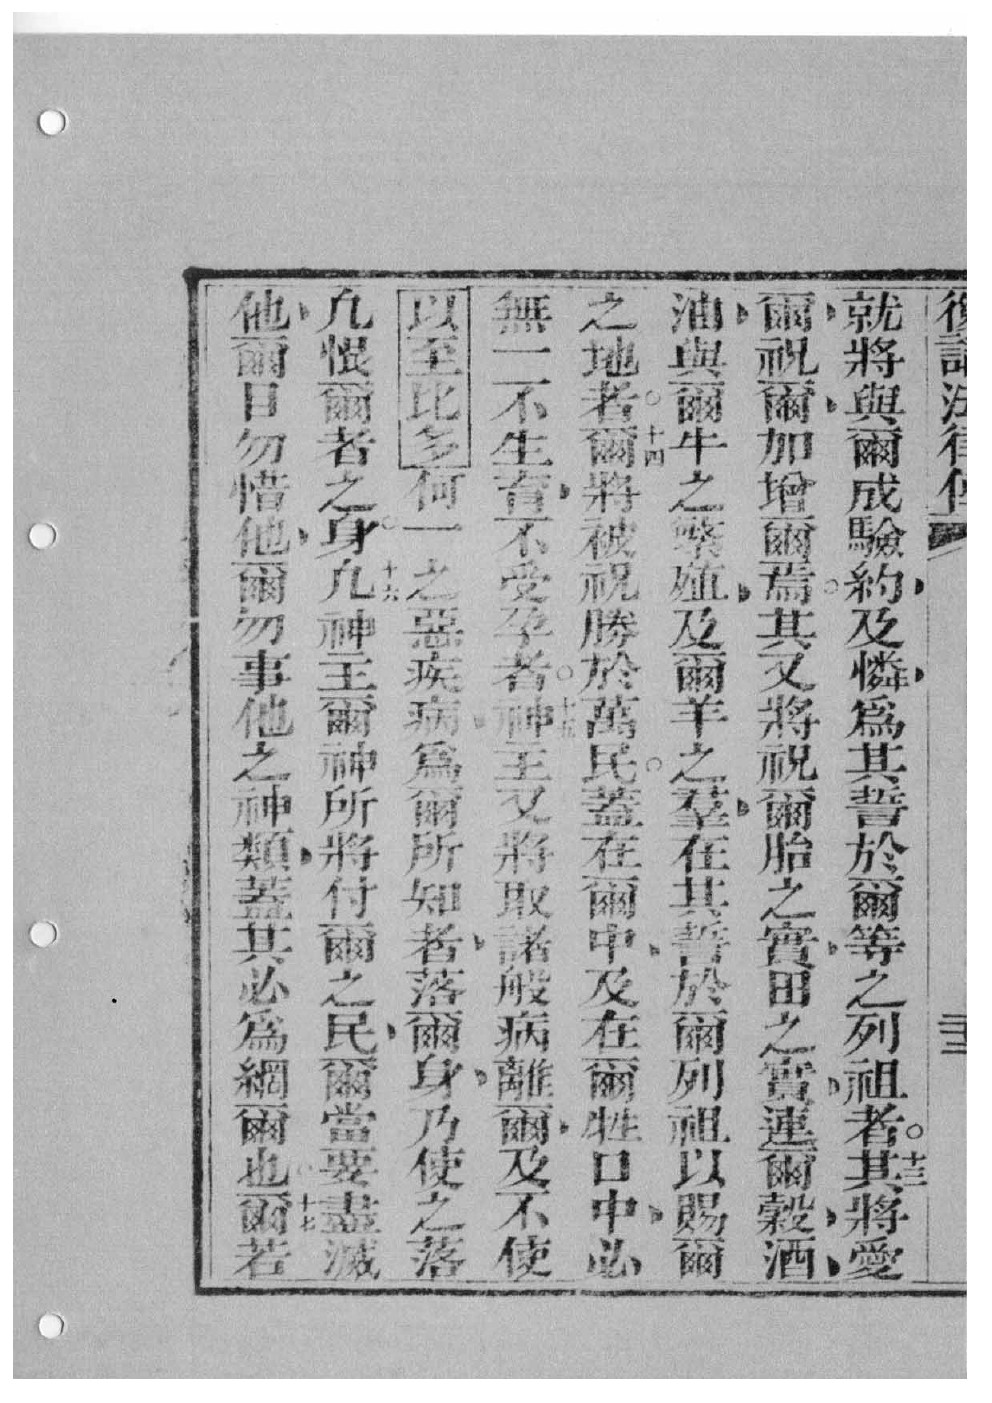 復講法律傳
就將與爾成驗約及憐爲其誓於爾等之列祖者。十三其將愛
爾祝爾加增爾焉。其又將祝爾胎之實田之實連爾穀酒
油與爾牛之繁殖及爾羊之羣在其誓於爾列祖以賜爾
之地者。十四爾將被祝勝於萬民。蓋在爾中及在爾牲口中必
無一不生育不受孕者。十五神主又將取諸般病離爾及不使
以至比多何一之惡疾病爲爾所知者落爾身乃使之落
凡恨爾者之身。十六凡神主爾神所將付爾之民爾當要盡滅
他爾目勿惜他爾勿事他之神類蓋其必爲綱爾也。十七爾若